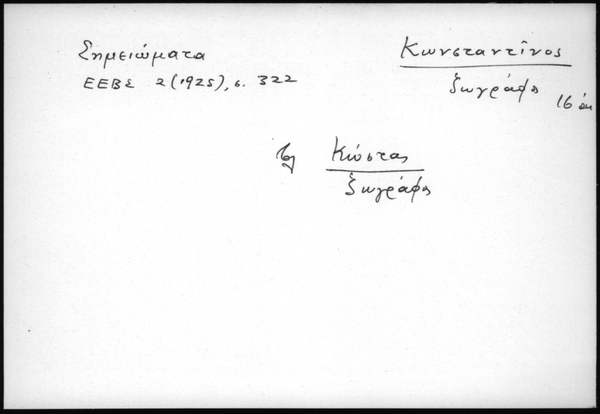 Σημειώματα
ΕΕΒΣ 2 (1925), σ. 322
Κωνσταντῖνος
ζωγράφος
16 αι
Κώστας
ζωγράφος